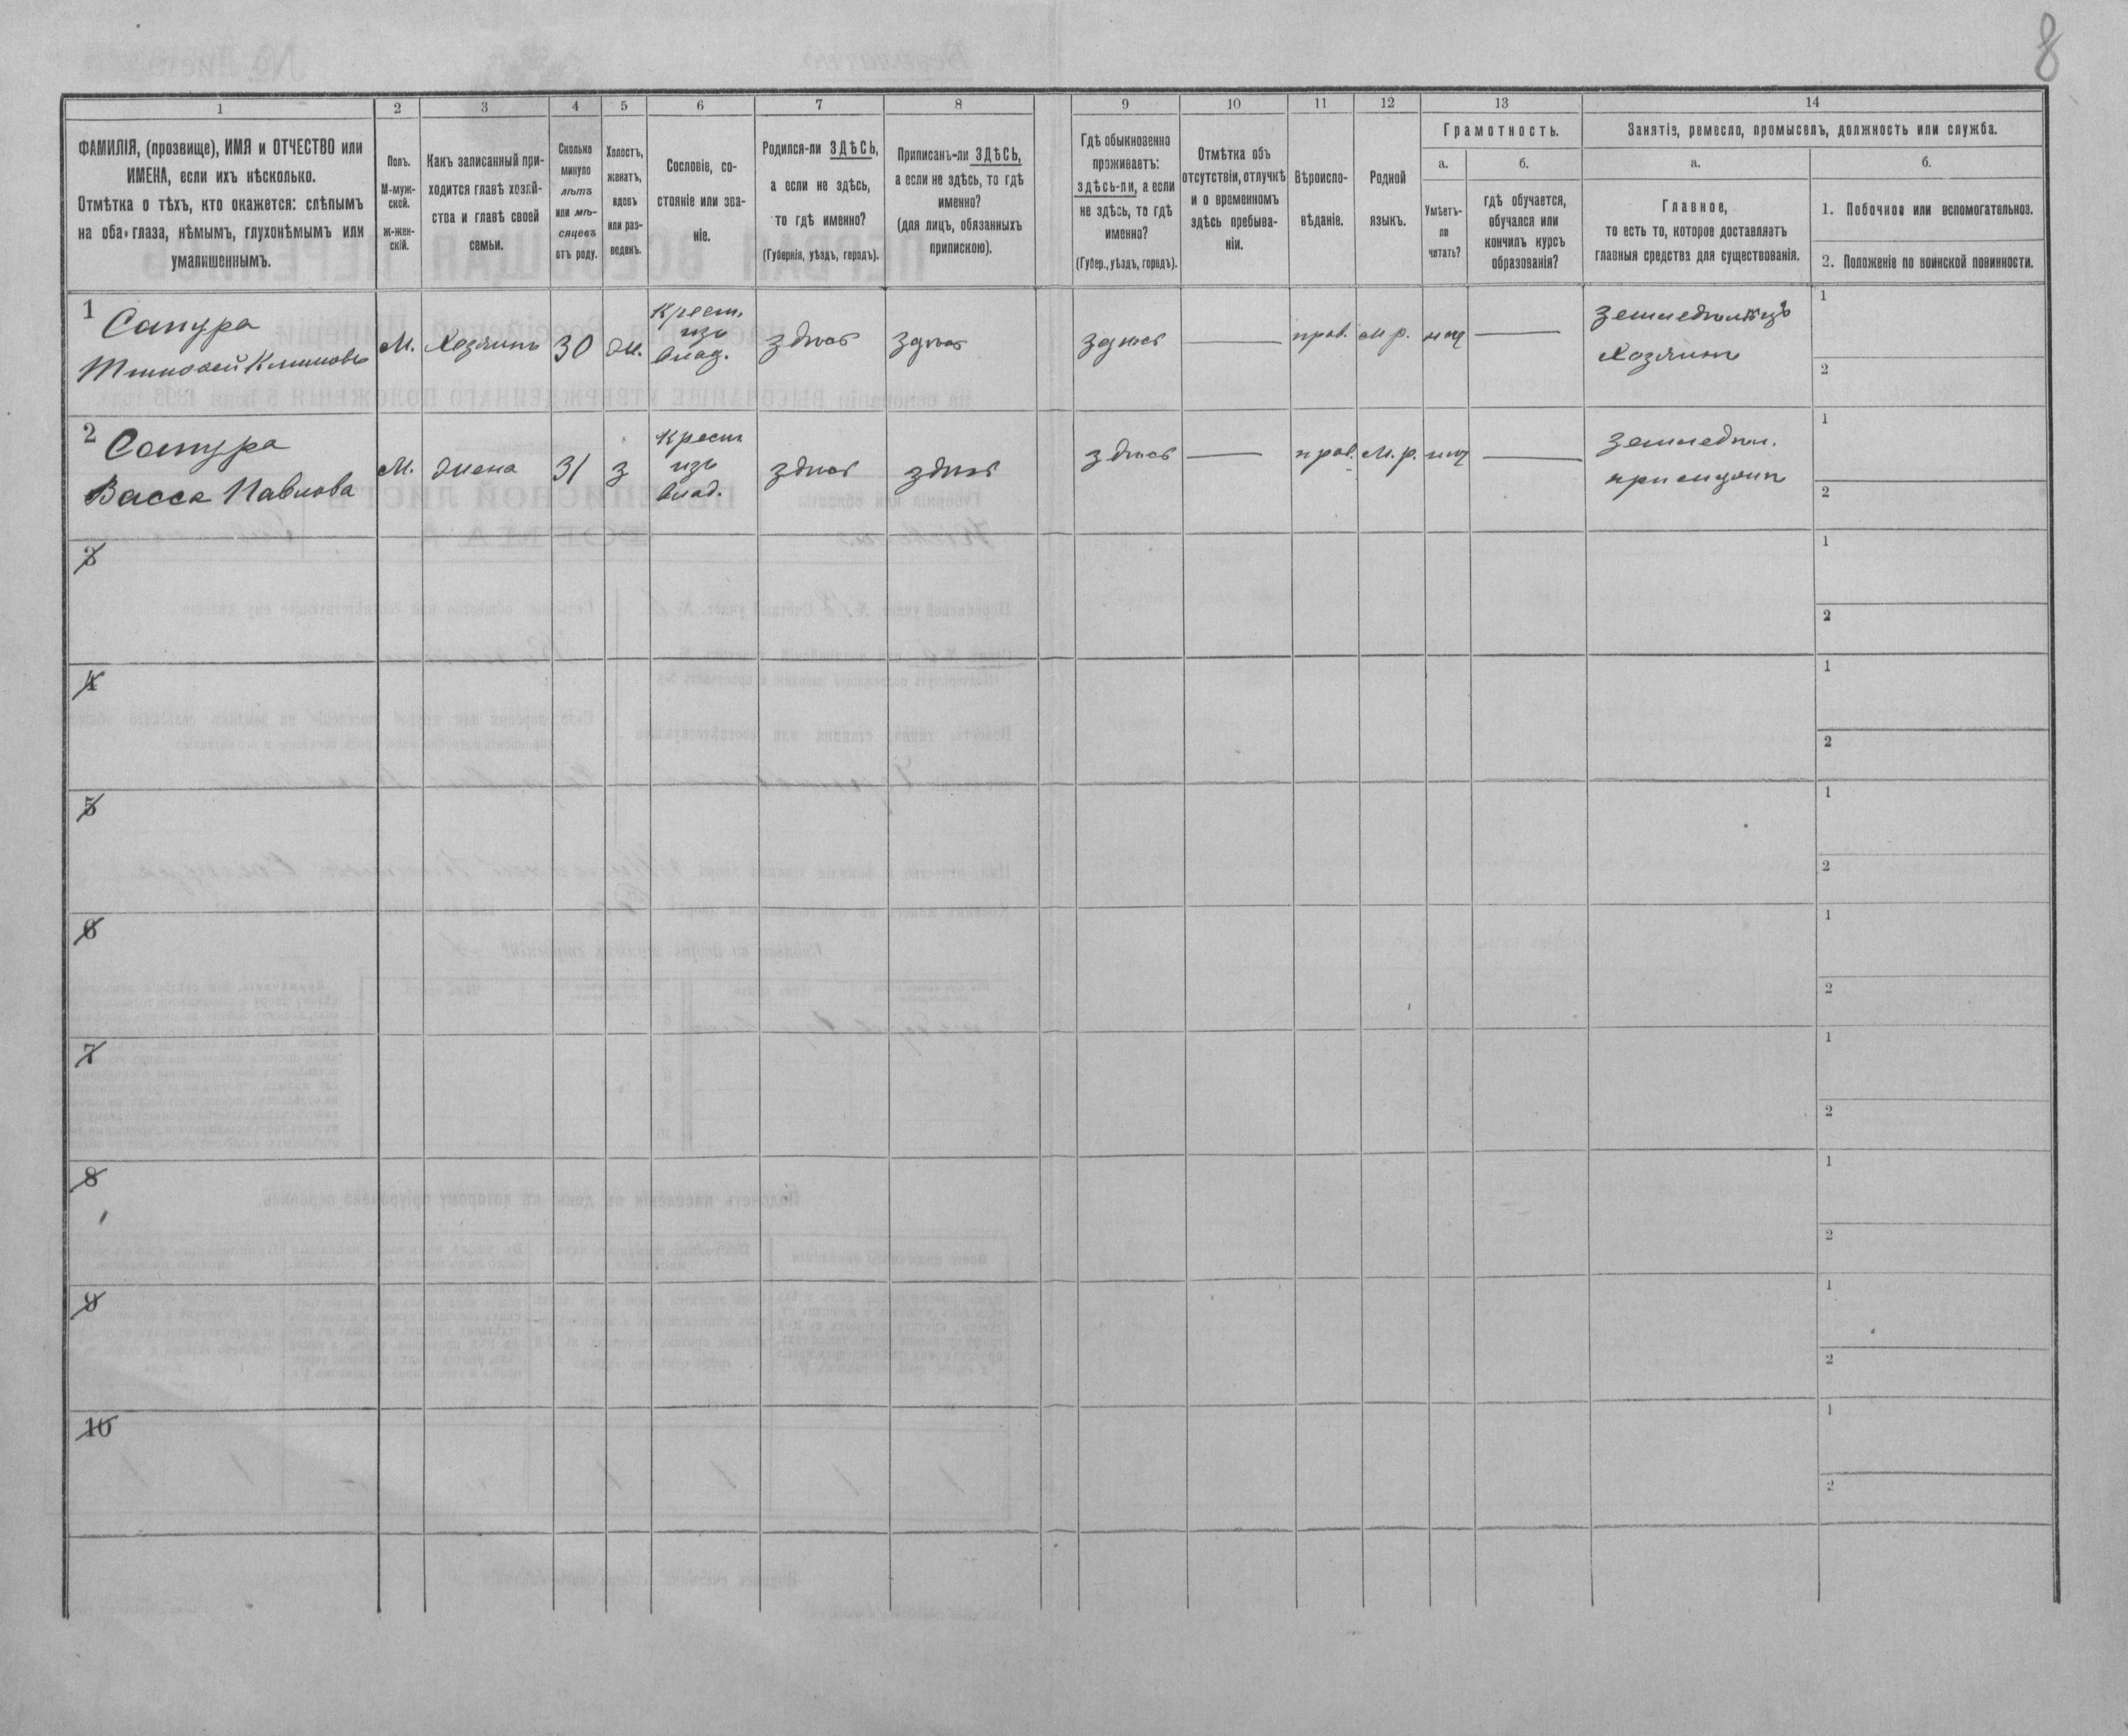 8
1 2 3 4 5 6 7 8 9 10 11 12 13 14
ФАМИЛІЯ, (прозвище), ИМЯ и ОТЧЕСТВО или
ИМЕНА, если ихъ нѣсколько.
Отмѣтка о тѣхъ, кто окажется: слѣпымъ
на оба глаза, нѣмымъ, глухонѣмымъ или
умалишеннымъ.
Полъ.
М-муж-
ской.
Ж-жен-
скій.
Какъ записанный при-
ходится главѣ хозяй-
ства и главѣ своей
семьи.
Сколько
минуло
лѣтъ
или мѣ-
сяцевъ
отъ роду.
Холостъ,
женатъ,
вдовъ
или раз-
веденъ.
Сословіе, со-
стояніе или зва-
ніе.
Родился-ли ЗДѢСЬ,
а если не здѣсь,
то гдѣ именно?
(Губернія, уѣздъ, городъ).
Приписанъ-ли ЗДѢСЬ,
а если не здѣсь, то гдѣ
именно?
(для лицъ, обязанныхъ
припискою).
Гдѣ обыкновенно
проживаетъ:
здѣсь-ли, а если
не здѣсь, то гдѣ
именно?
(Губер., уѣздъ, городъ).
Отмѣтка объ
отсутствіи, отлучкѣ
и о временномъ
здѣсь пребыва-
ніи.
Вѣроиспо-
вѣданіе.
Родной
языкъ.
Грамотность.
а.
Умѣетъ-
ли
читать?
б.
гдѣ обучается,
обучался или
кончилъ курсъ
образованія?
Занятіе, ремесло, промыселъ, должность или служба.
а.
Главное,
то есть то, которое доставляетъ
главныя средства для существованія.
б.
1. Побочное или вспомогательное.
2. Положеніе по воинской повинности.
1 Сапура
Тимофей Климовъ
М.
Хозяинъ
30
ж.
Крест.
изъ
влад.
здѣсь
здѣсь
здѣсь
прав.
м р.
нѣт
земледѣлецъ
Хозяинъ
1
2
2 Сапура
Васса Павлова
М.
жена
31
з
Крест
изъ
влад.
здѣсь
здѣсь
здѣсь
прав.
М. р.
нѣт
земледѣл.
1
2
3
1
2
4
1
2
5
1
2
6
1
2
7
1
2
8
1
2
9
1
2
10
1
2